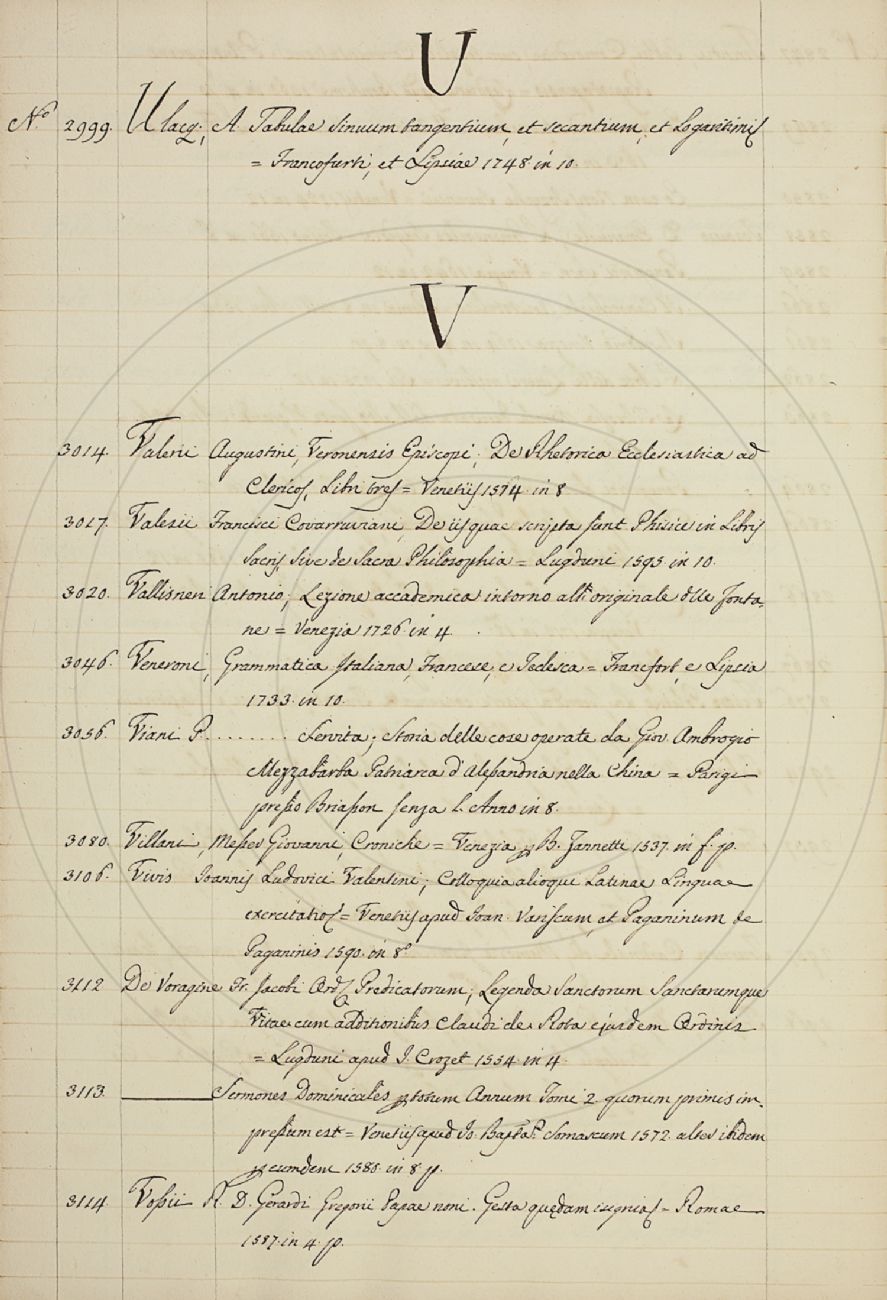 U
No. 2999. Ulacq; A. Tabulae Sinuum tangentium, et secantium, et Logaritimis
= Francofurti, et Lipsiae 1748 in 10.
V
3014. Valerii Augustini, Veronensis Episcopi; De Rhetorica Ecclesiastica ad
Clericos, Libri tres = Venetiis 1574. in 8
3017. Valesii Francisci Covarruviani, De iis quae scripta sunt Phisice in Libris
Sacris, sive de Sacra Philosophia = Lugduni 1595 in 10.
3020. Vallisneri Antonio; Lezione accademica intorno all'originale delle fonta-
ne = Venezia 1726 in 4.
3046. Veneroni, Grammatica Italiana, Francese, e Tedesca = Francfort, e Lipsia
1733. in 10.
3056. Viani P. . . . . . . . . Servita; Storia delle cose operate da Giov. Ambrogio
Mezzabarba Patriarca d'Alessandria nella China = Parigi
presso Briasson senza l'Anno in 8.
3080. Villani, Messer Giovanni, Croniche = Venezia p B. Zannetti 1537. in f. p.
3106. Vivis Joannis Ludovici Valentini; Colloquia alioqui Latinae Linguae
exercitatio = Venetiis apud Joan. Variscum, et Paganinum de
Paganinis 1590. in 8o
3112 De Voragine Fr. Jacobi Ord. Predicatorum; Legenda Sanctorum Sanctarumque
Vitae cum additionibus Claudi de Rota ejusdem Ordinis
= Lugduni apud J. Crozet 1554. in 4.
3113. Sermones Dominicales p totum Annum Tomi 2. quorum primis im-
pressum est = Venetiis apud Jo. Bapta. Somascum 1572. alter ibidem
p eumdem 1580. in 8 p.
3114. Vossii R. D. Gerardi Gregorii Papae noni. Gesta quędam insignia = Romae
1587. in 4. p.